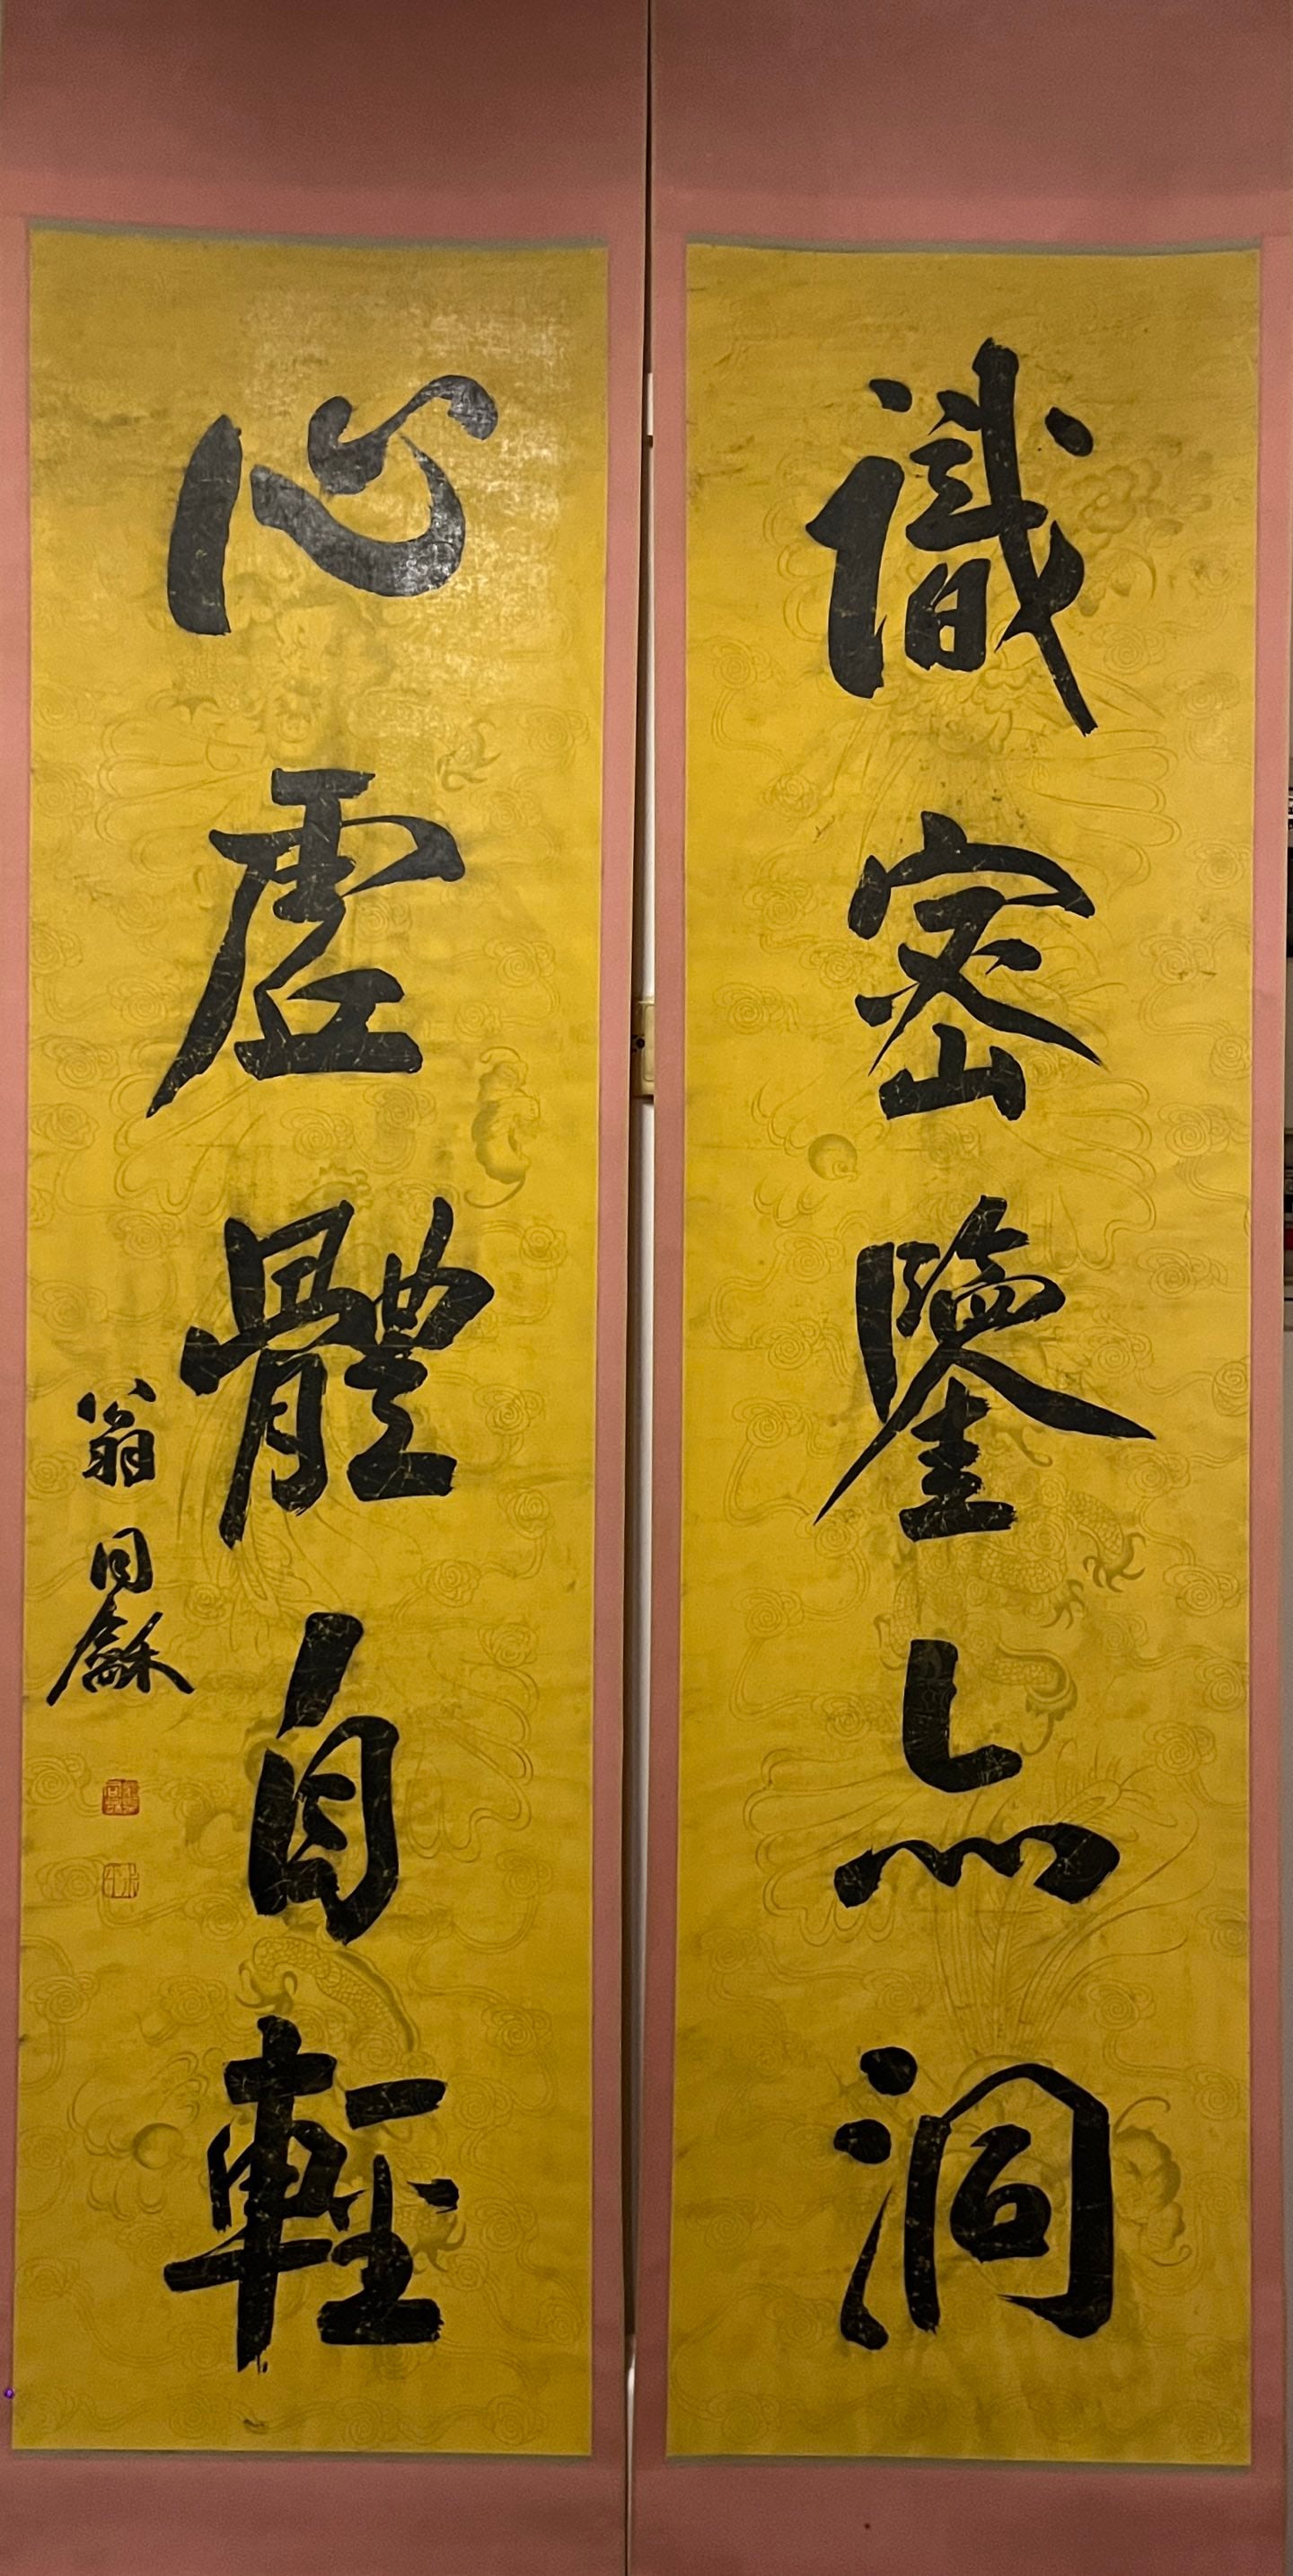 識密鑒亦洞
心虛體自輕
翁同龢